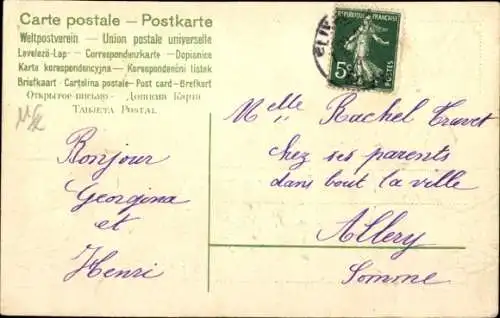 Carte postale — Postkarte
Weltpostverein — Union postale universelle
Levelező-Lap — Correspondenzkarte — Dopisnice
Karta korespondencyjna — Korespondenční lístek
Briefkaart — Cartolina postale — Post card — Brefkort
Открытое письмо — Дописна Карта
Tarjeta Postal
REPUBLIQUE FRANÇAISE
5c
POSTES
Bonjour
Georgina
et
Henri
Melle Rachel
chez ses parents
dans bout la ville
Allery
Somme